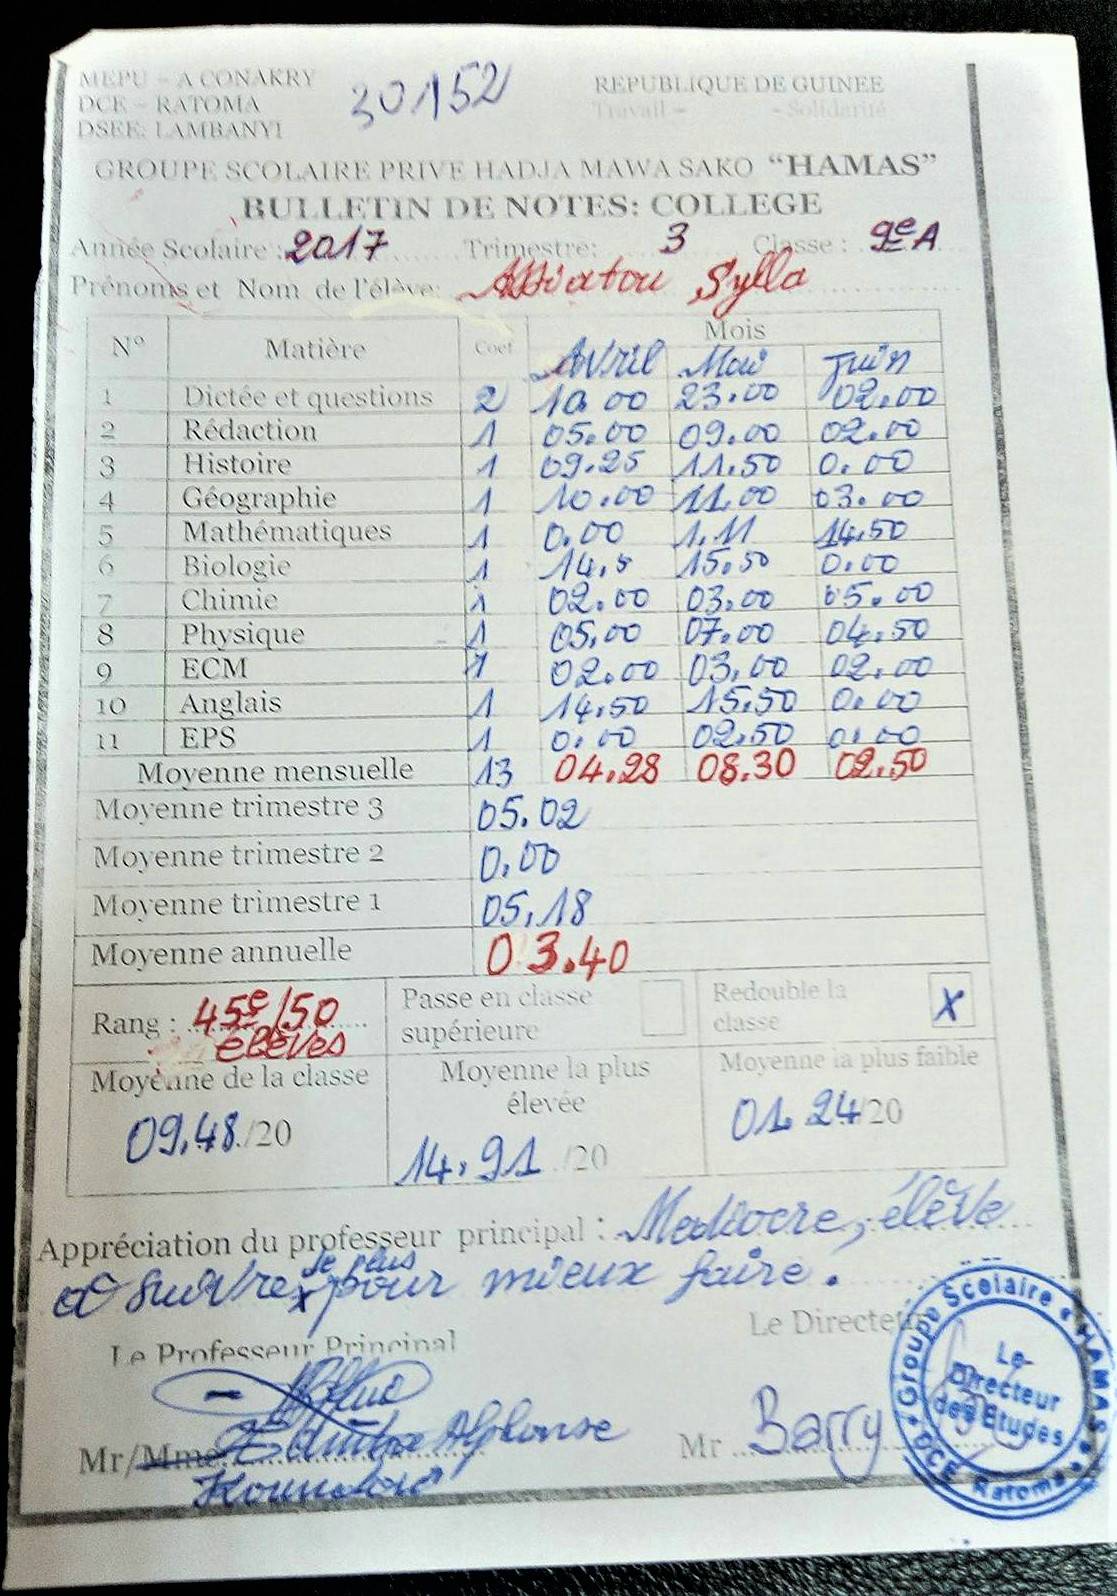 MEPU – A CONAKRY
DCE – RATOMA
DSEE: LAMBANYI
30152
REPUBLIQUE DE GUINEE
Travail – - Solidarité
GROUPE SCOLAIRE PRIVE HADJA MAWA SAKO “HAMAS”
BULLETIN DE NOTES: COLLEGE
Année Scolaire : 2017 Trimestre: 3 Classe : 9e A
Prénoms et Nom de l'élève: Assiatou Sylla
N° Matière Coef Mois
Avril Mai Juin
1 Dictée et questions 2 10.00 23.00 02.00
2 Rédaction 1 05.00 09.00 02.00
3 Histoire 1 09.25 11.50 0.00
4 Géographie 1 10.00 11.00 03.00
5 Mathématiques 1 0.00 1.11 14.50
6 Biologie 1 14,5 15.50 0.00
7 Chimie 1 02.00 03.00 05.00
8 Physique 1 05,00 07.00 04,50
9 ECM 1 02.00 03,00 02.00
10 Anglais 1 14,50 15.50 0.00
11 EPS 1 0.00 02,50 0.00
Moyenne mensuelle 13 04.28 08.30 02.50
Moyenne trimestre 3 05.02
Moyenne trimestre 2 0,00
Moyenne trimestre 1 05,18
Moyenne annuelle 03.40
Rang : 45e/50
élèves
Passe en classe
supérieure
Redouble la
classe X
Moyenne de la classe
09,48/20
Moyenne la plus
élevée
14,91 /20
Moyenne la plus faible
01.24/20
Appréciation du professeur principal : Mediocre, élève
à suivre de plus pour mieux faire.
Le Professeur Principal
Le Directeur
Mr/Mme Alphonse
Mr Barry
Groupe Scolaire HAMAS DCE Ratoma
Le Directeur des Etudes